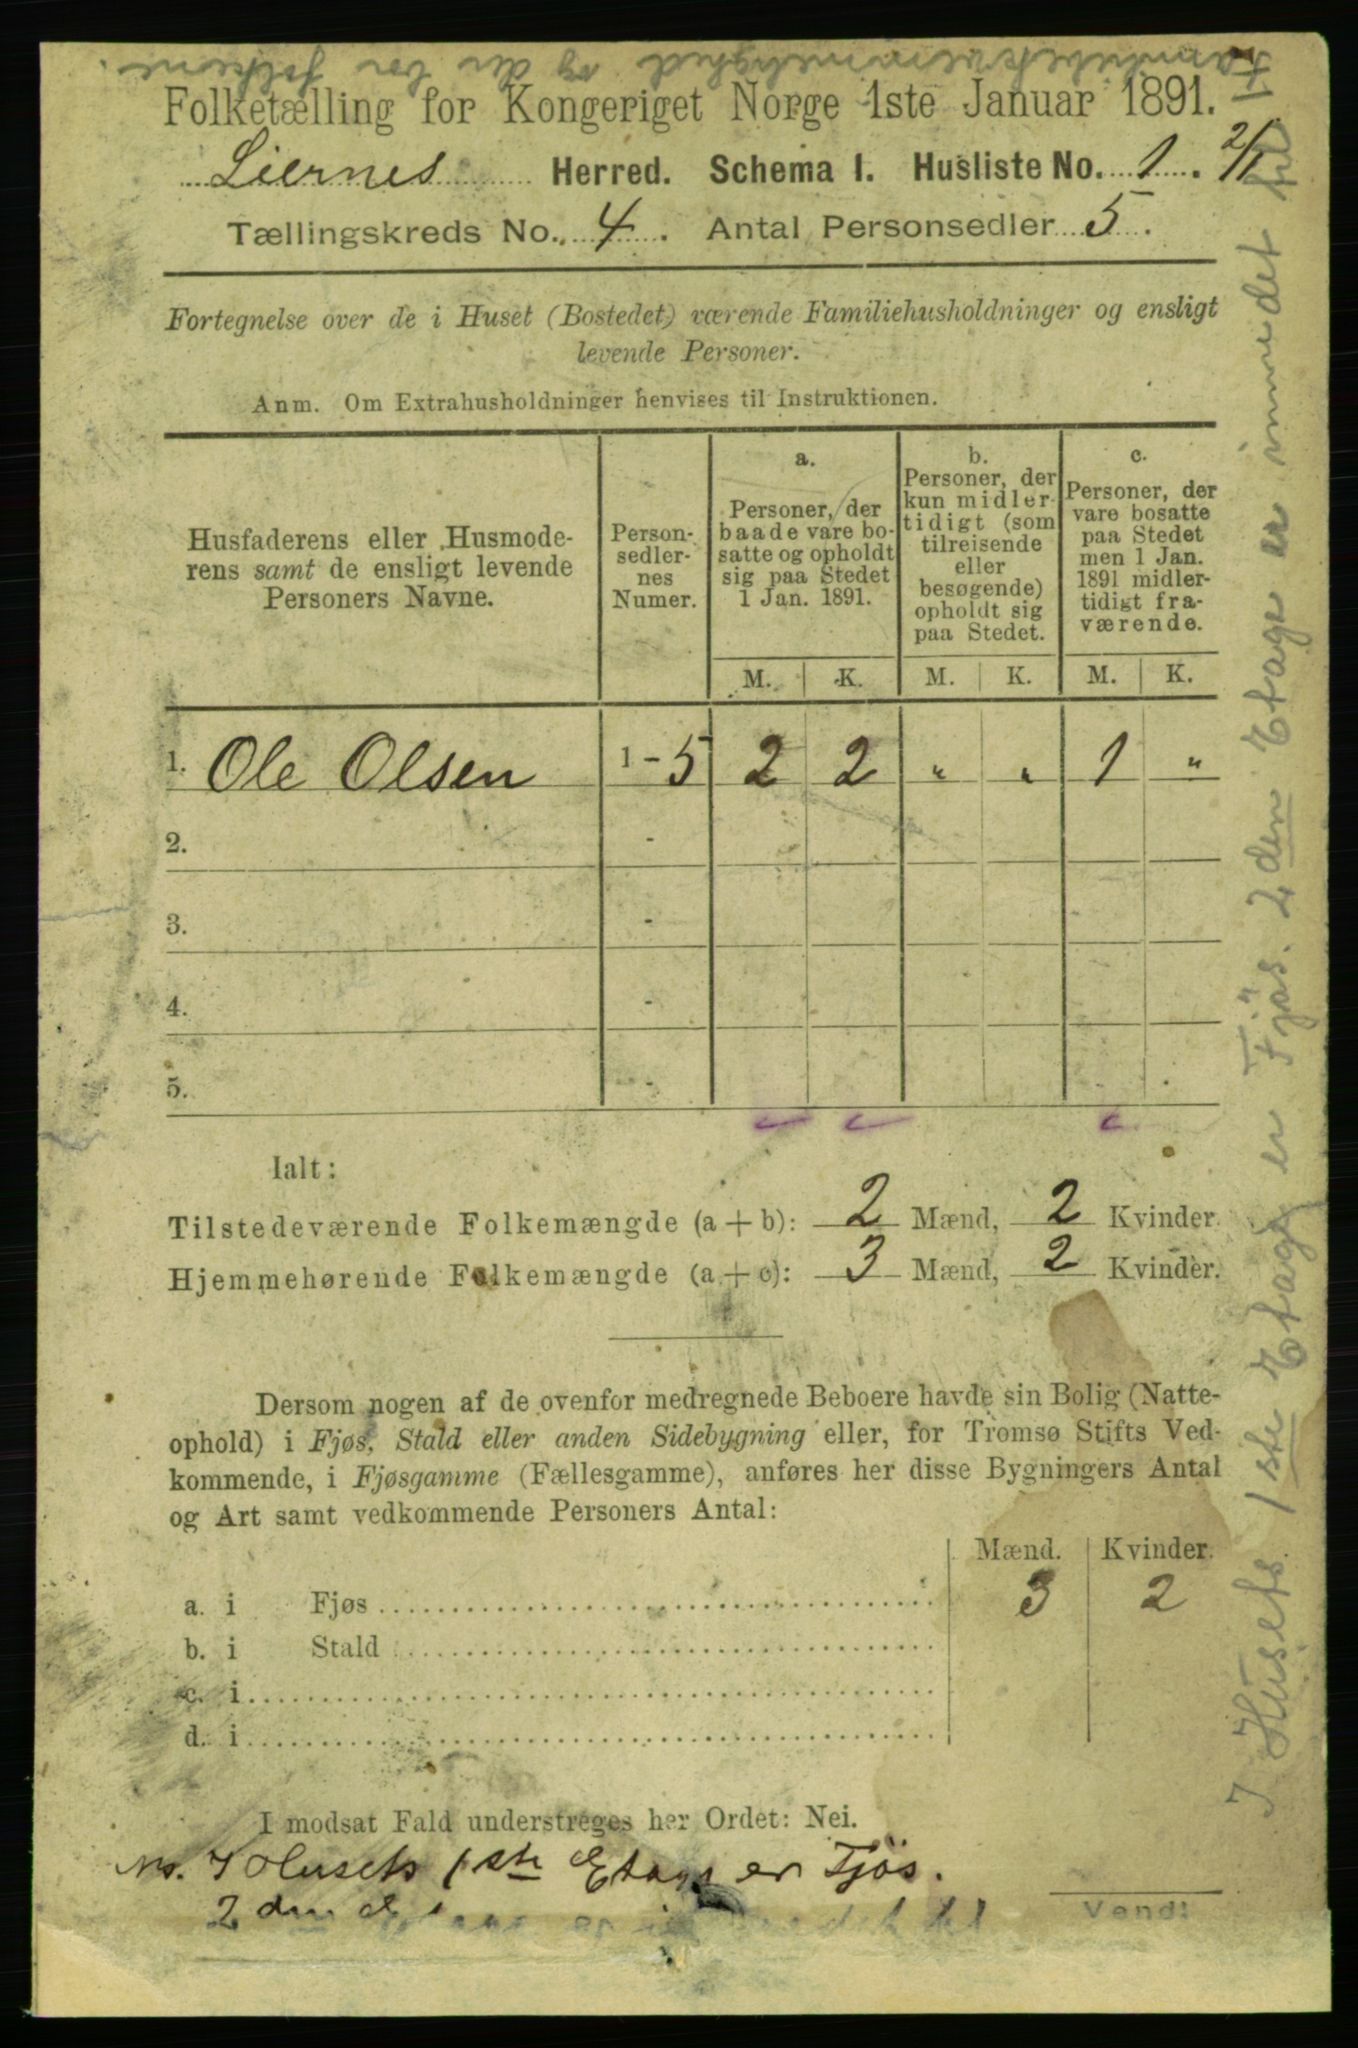 Familiebekvemmelighed og der bor folkene.
Folketælling for Kongeriget Norge 1ste Januar 1891.
Liernes Herred. Schema I. Husliste No. 1. 2/1
Tællingskreds No. 4. Antal Personsedler 5.
Fortegnelse over de i Huset (Bostedet) værende Familiehusholdninger og ensligt
levende Personer.
Anm. Om Extrahusholdninger henvises til Instruktionen.
Husfaderens eller Husmode-
rens samt de ensligt levende
Personers Navne.
Person-
sedler-
nes
Numer.
a.
Personer, der
baade vare bo-
satte og opholdt
sig paa Stedet
1 Jan. 1891.
b.
Personer, der
kun midler-
tidigt (som
tilreisende
eller
besøgende)
opholdt sig
paa Stedet.
c.
Personer, der
vare bosatte
paa Stedet
men 1 Jan.
1891 midler-
tidigt fra-
værende.
M. K. M. K. M. K.
1. Ole Olsen 1-5 2 2 „ „ 1 „
2. -
3. -
4. -
5. -
Ialt:
Tilstedeværende Folkemængde (a + b): 2 Mænd, 2 Kvinder.
Hjemmehørende Folkemængde (a + c): 3 Mænd, 2 Kvinder.
Dersom nogen af de ovenfor medregnede Beboere havde sin Bolig (Natte-
ophold) i Fjøs, Stald eller anden Sidebygning eller, for Tromsø Stifts Ved-
kommende, i Fjøsgamme (Fællesgamme), anføres her disse Bygningers Antal
og Art samt vedkommende Personers Antal:
Mænd. Kvinder.
a. i Fjøs 3 2
b. i Stald
c. i
d. i
I modsat Fald understreges her Ordet: Nei.
Ns. I Husets 1ste Etage er Fjös.
2den
Vend!
I Husets 1ste Etage er Fjös. 2den Etage er innredet til